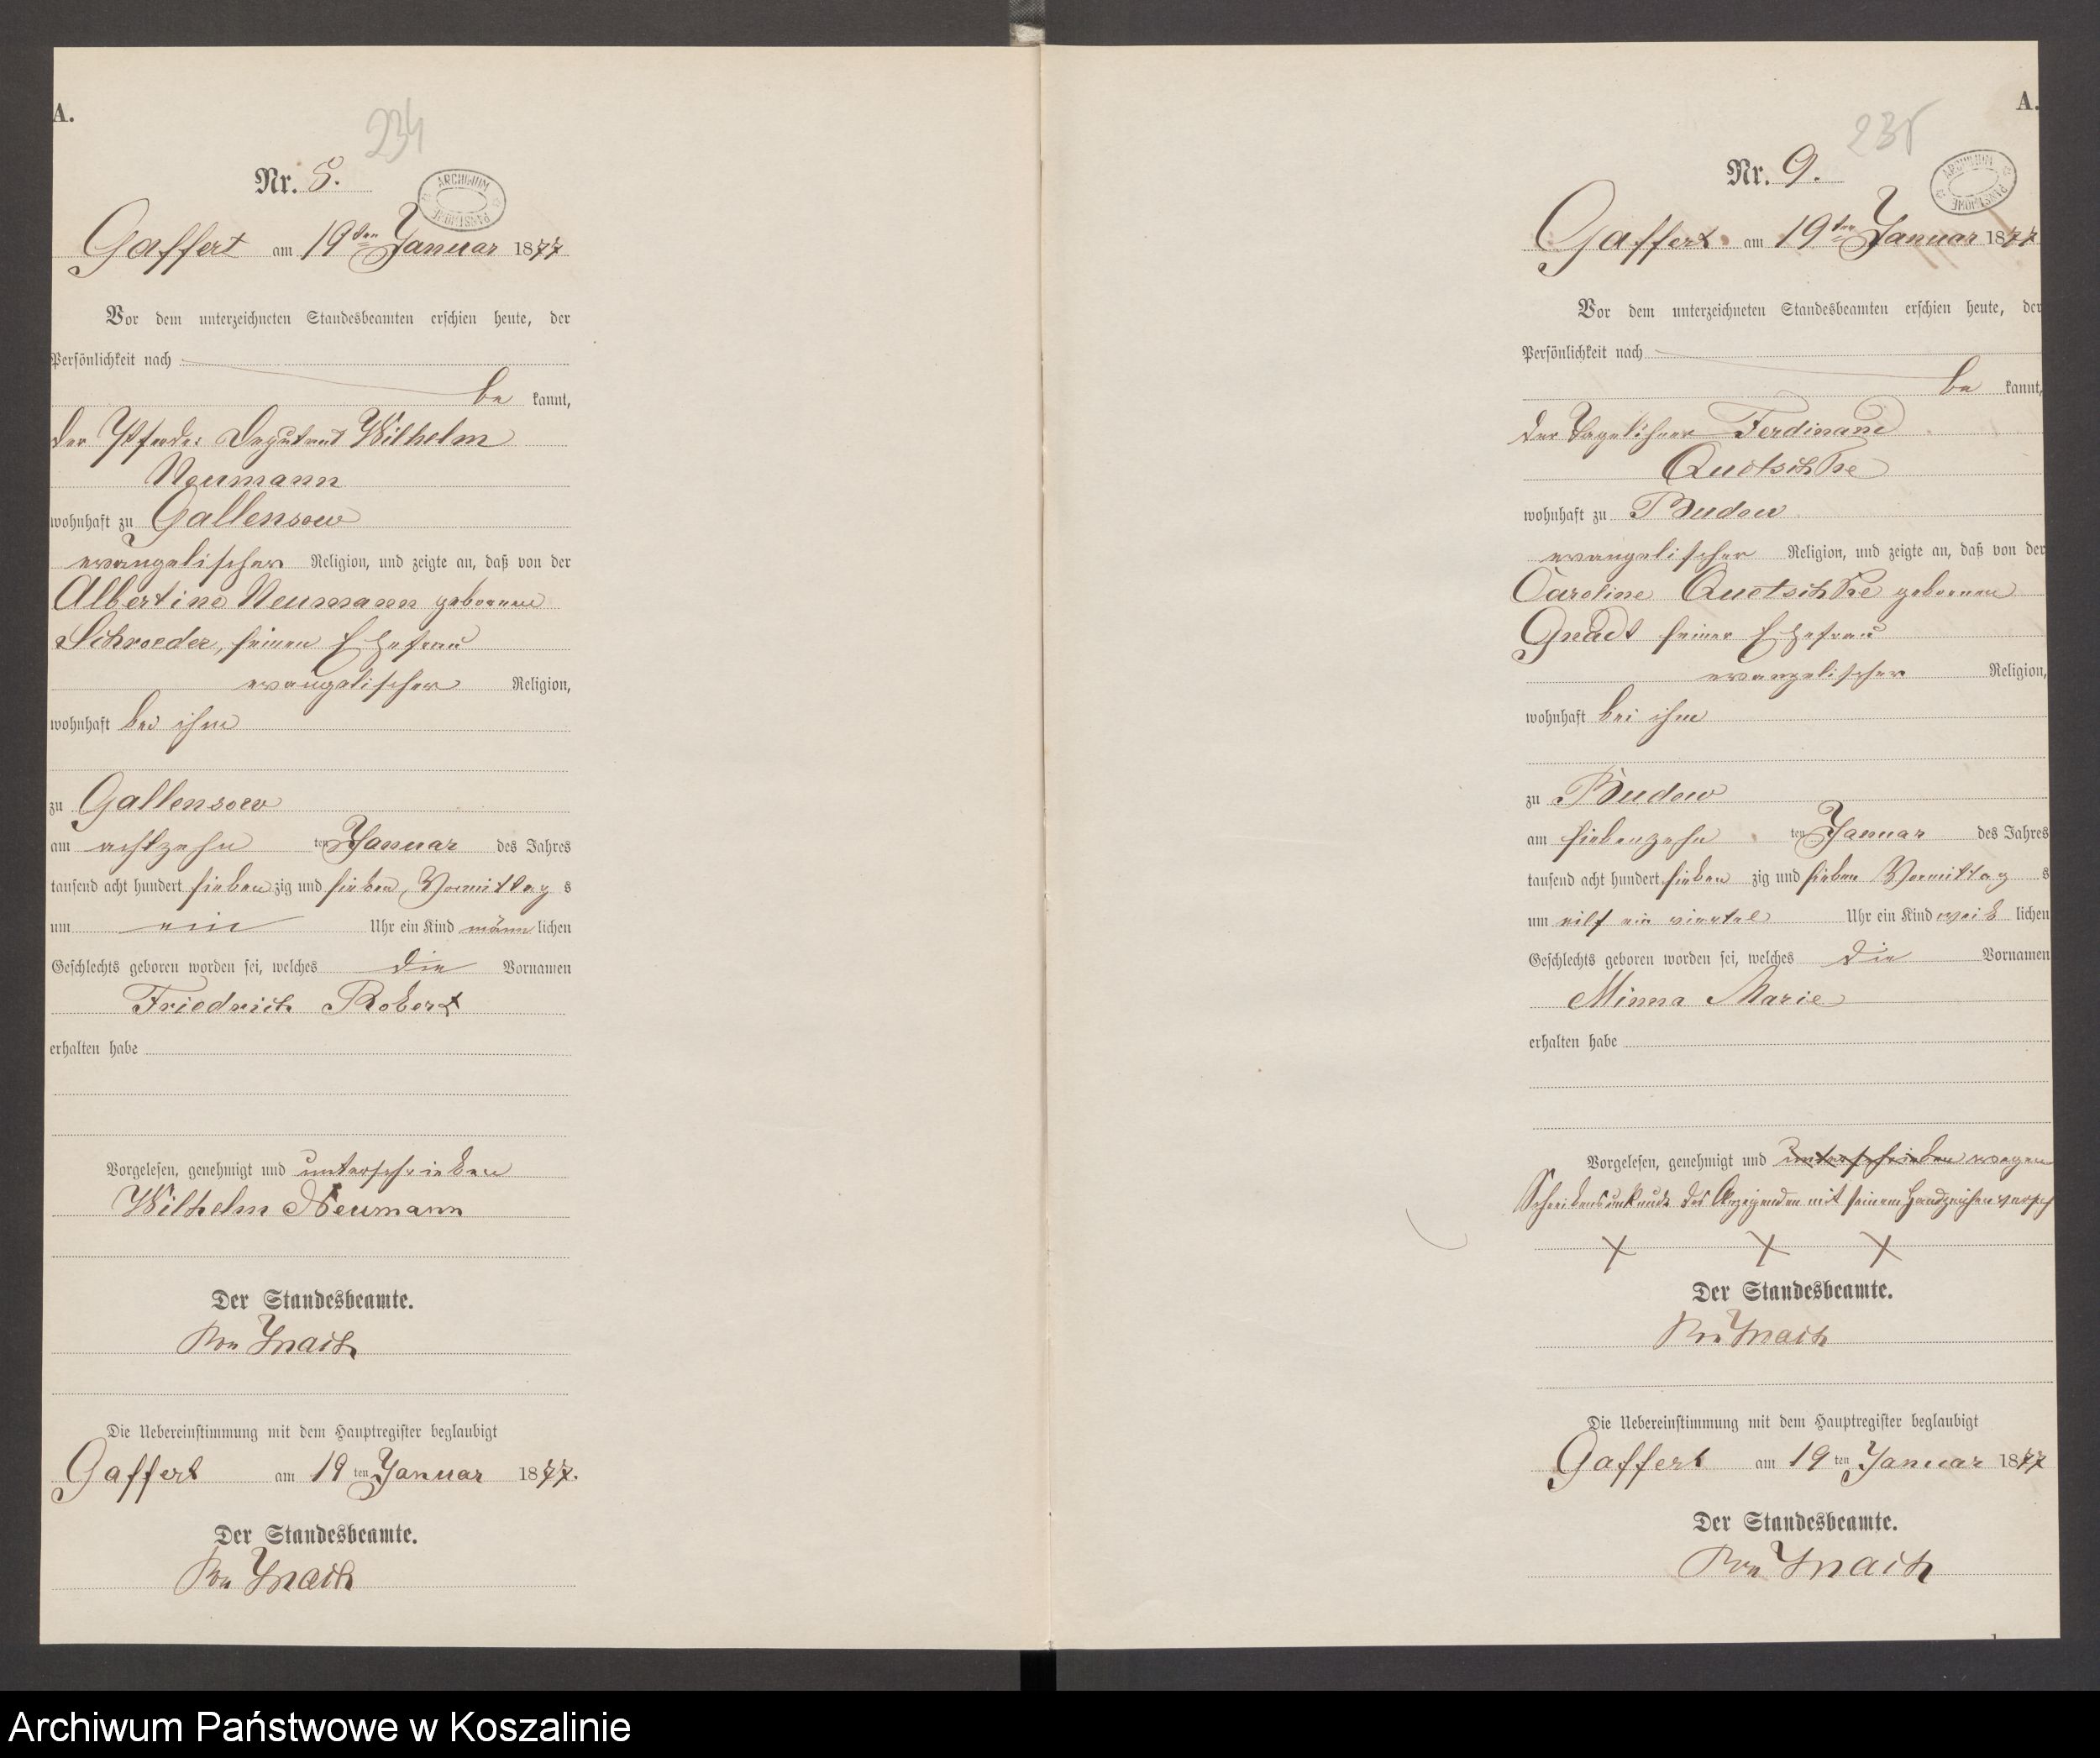 A.
234
Nr. 8.
ARCHIWUM PAŃSTWOWE
Gaffert am 19ten Januar 1877
Vor dem unterzeichneten Standesbeamten erschien heute, der
Persönlichkeit nach
be kannt,
der Pferde Deputant Wilhelm
Neumann
wohnhaft zu Gallensow
evangelischer Religion, und zeigte an, daß von der
Albertine Neumann geborenen
Schroeder, seiner Ehefrau
evangelischer Religion,
wohnhaft bei ihm
zu Gallensow
am achtzehn ten Januar des Jahres
tausend acht hundert sieben zig und sieben, Vormittag s
um ein Uhr ein Kind männ lichen
Geschlechts geboren worden sei, welches die Vornamen
Friedrich Robert
erhalten habe
Vorgelesen, genehmigt und unterschrieben
Wilhelm Neumann
Der Standesbeamte.
Die Uebereinstimmung mit dem Hauptregister beglaubigt
Gaffert am 19 ten Januar 1877.
Der Standesbeamte.
A.
235
Nr. 9.
ARCHIWUM PAŃSTWOWE
Gaffert am 19ten Januar 1877
Vor dem unterzeichneten Standesbeamten erschien heute, der
Persönlichkeit nach
be kannt,
der Tagelöhner Ferdinand
Quetschke
wohnhaft zu Budow
evangelischer Religion, und zeigte an, daß von der
Caroline Quetschke geborenen
Gnadt seiner Ehefrau
evangelischer Religion,
wohnhaft bei ihm
zu Budow
am siebenzehn ten Januar des Jahres
tausend acht hundert sieben zig und sieben Vormittag s
um eilf ein viertel Uhr ein Kind weib lichen
Geschlechts geboren worden sei, welches die Vornamen
Minna Marie
erhalten habe
Vorgelesen, genehmigt und unterschrieben wegen
Schreibensunkunde des Anzeigenden mit seinem Handzeichen versch
X X X
Der Standesbeamte.
Die Uebereinstimmung mit dem Hauptregister beglaubigt
Gaffert am 19 ten Januar 1877
Der Standesbeamte.
Archiwum Państwowe w Koszalinie